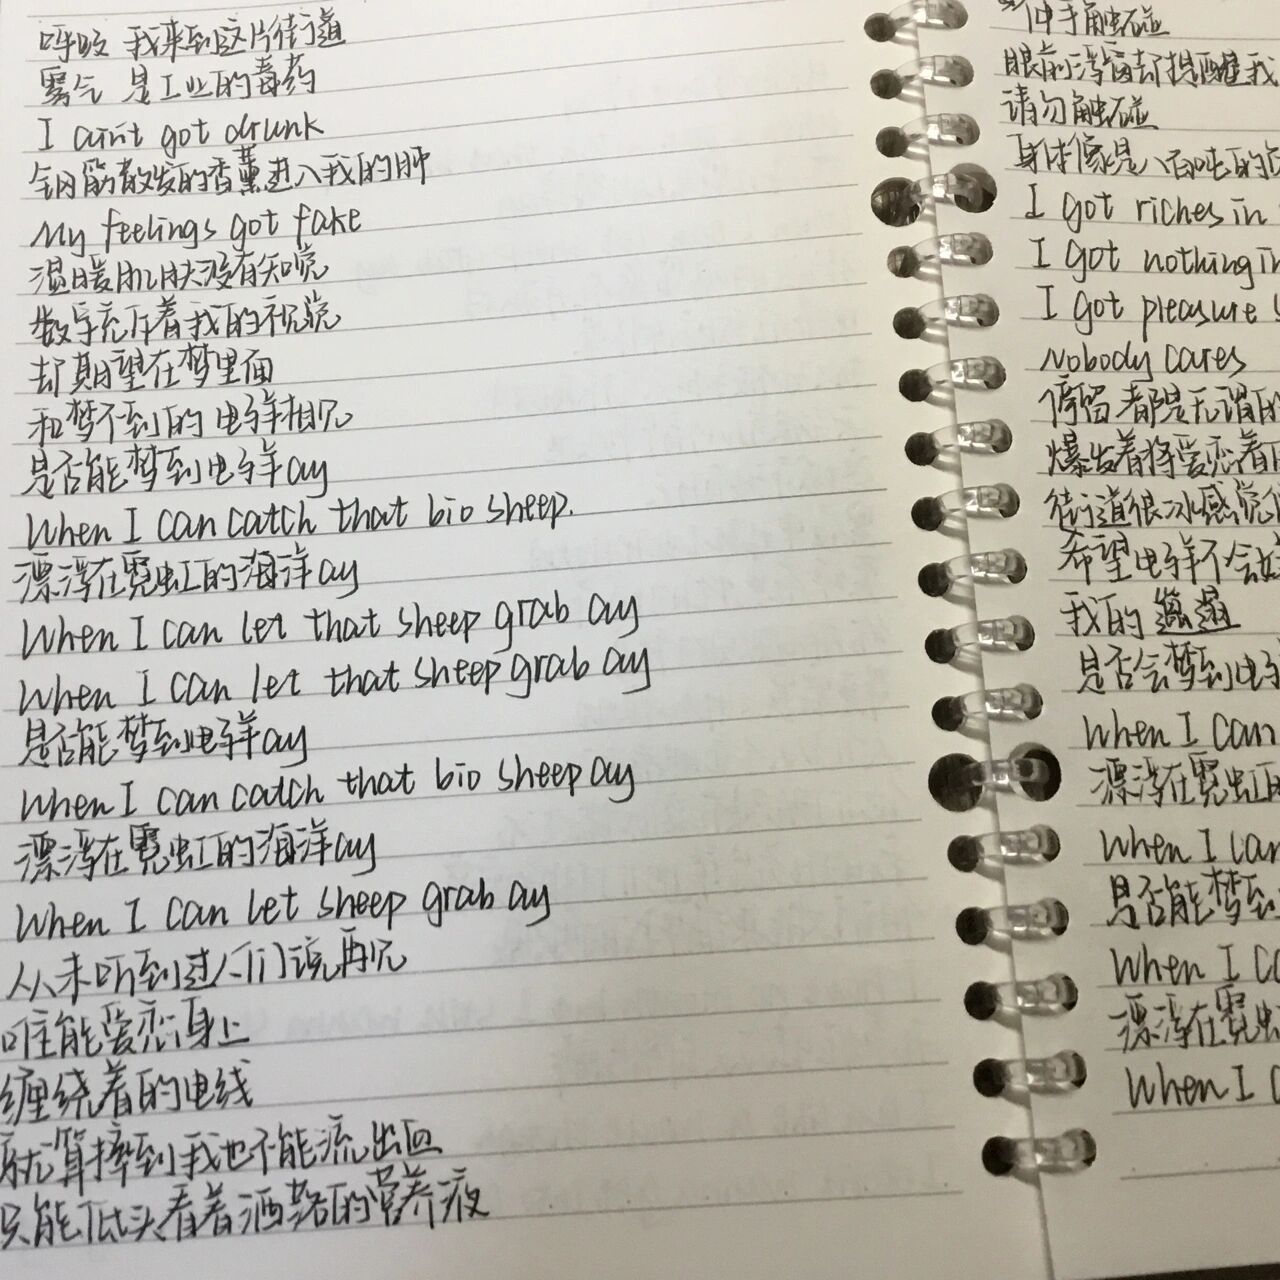 呼吸 我来到这片街道
雾气 是工业的毒药
I ain't got drunk
钢筋散发的香薰进入我的肺
My feelings got fake
温暖肌肤没有知觉
数字充斥着我的视觉
却期望在梦里面
和梦不到的电子羊相见
是否能梦到电子羊ay
When I can catch that bio sheep.
漂浮在霓虹的海洋ay
When I can let that sheep grab ay
When I can let that sheep grab ay
是否能梦到电子羊ay
When I can catch that bio sheep ay
漂浮在霓虹的海洋ay
When I can let sheep grab ay
从未听到过人们说再见
唯能爱恋身上
缠绕着的电线
就算摔到我也不能流出血
只能低头看着洒落的营养液
伸手触碰
眼前浮窗却提醒我
请勿触碰
身体像是八百吨的
I got riches in
I got nothing in
I got pleasure
Nobody cares
停留都是无谓的
爆发着将爱恋着
街道很冰感觉
希望电子羊不会嫌
我的邋遢
是否会梦到电子
When I can
漂浮在霓虹的
When I can
是否能梦到
When I ca
漂浮在霓虹
When I c